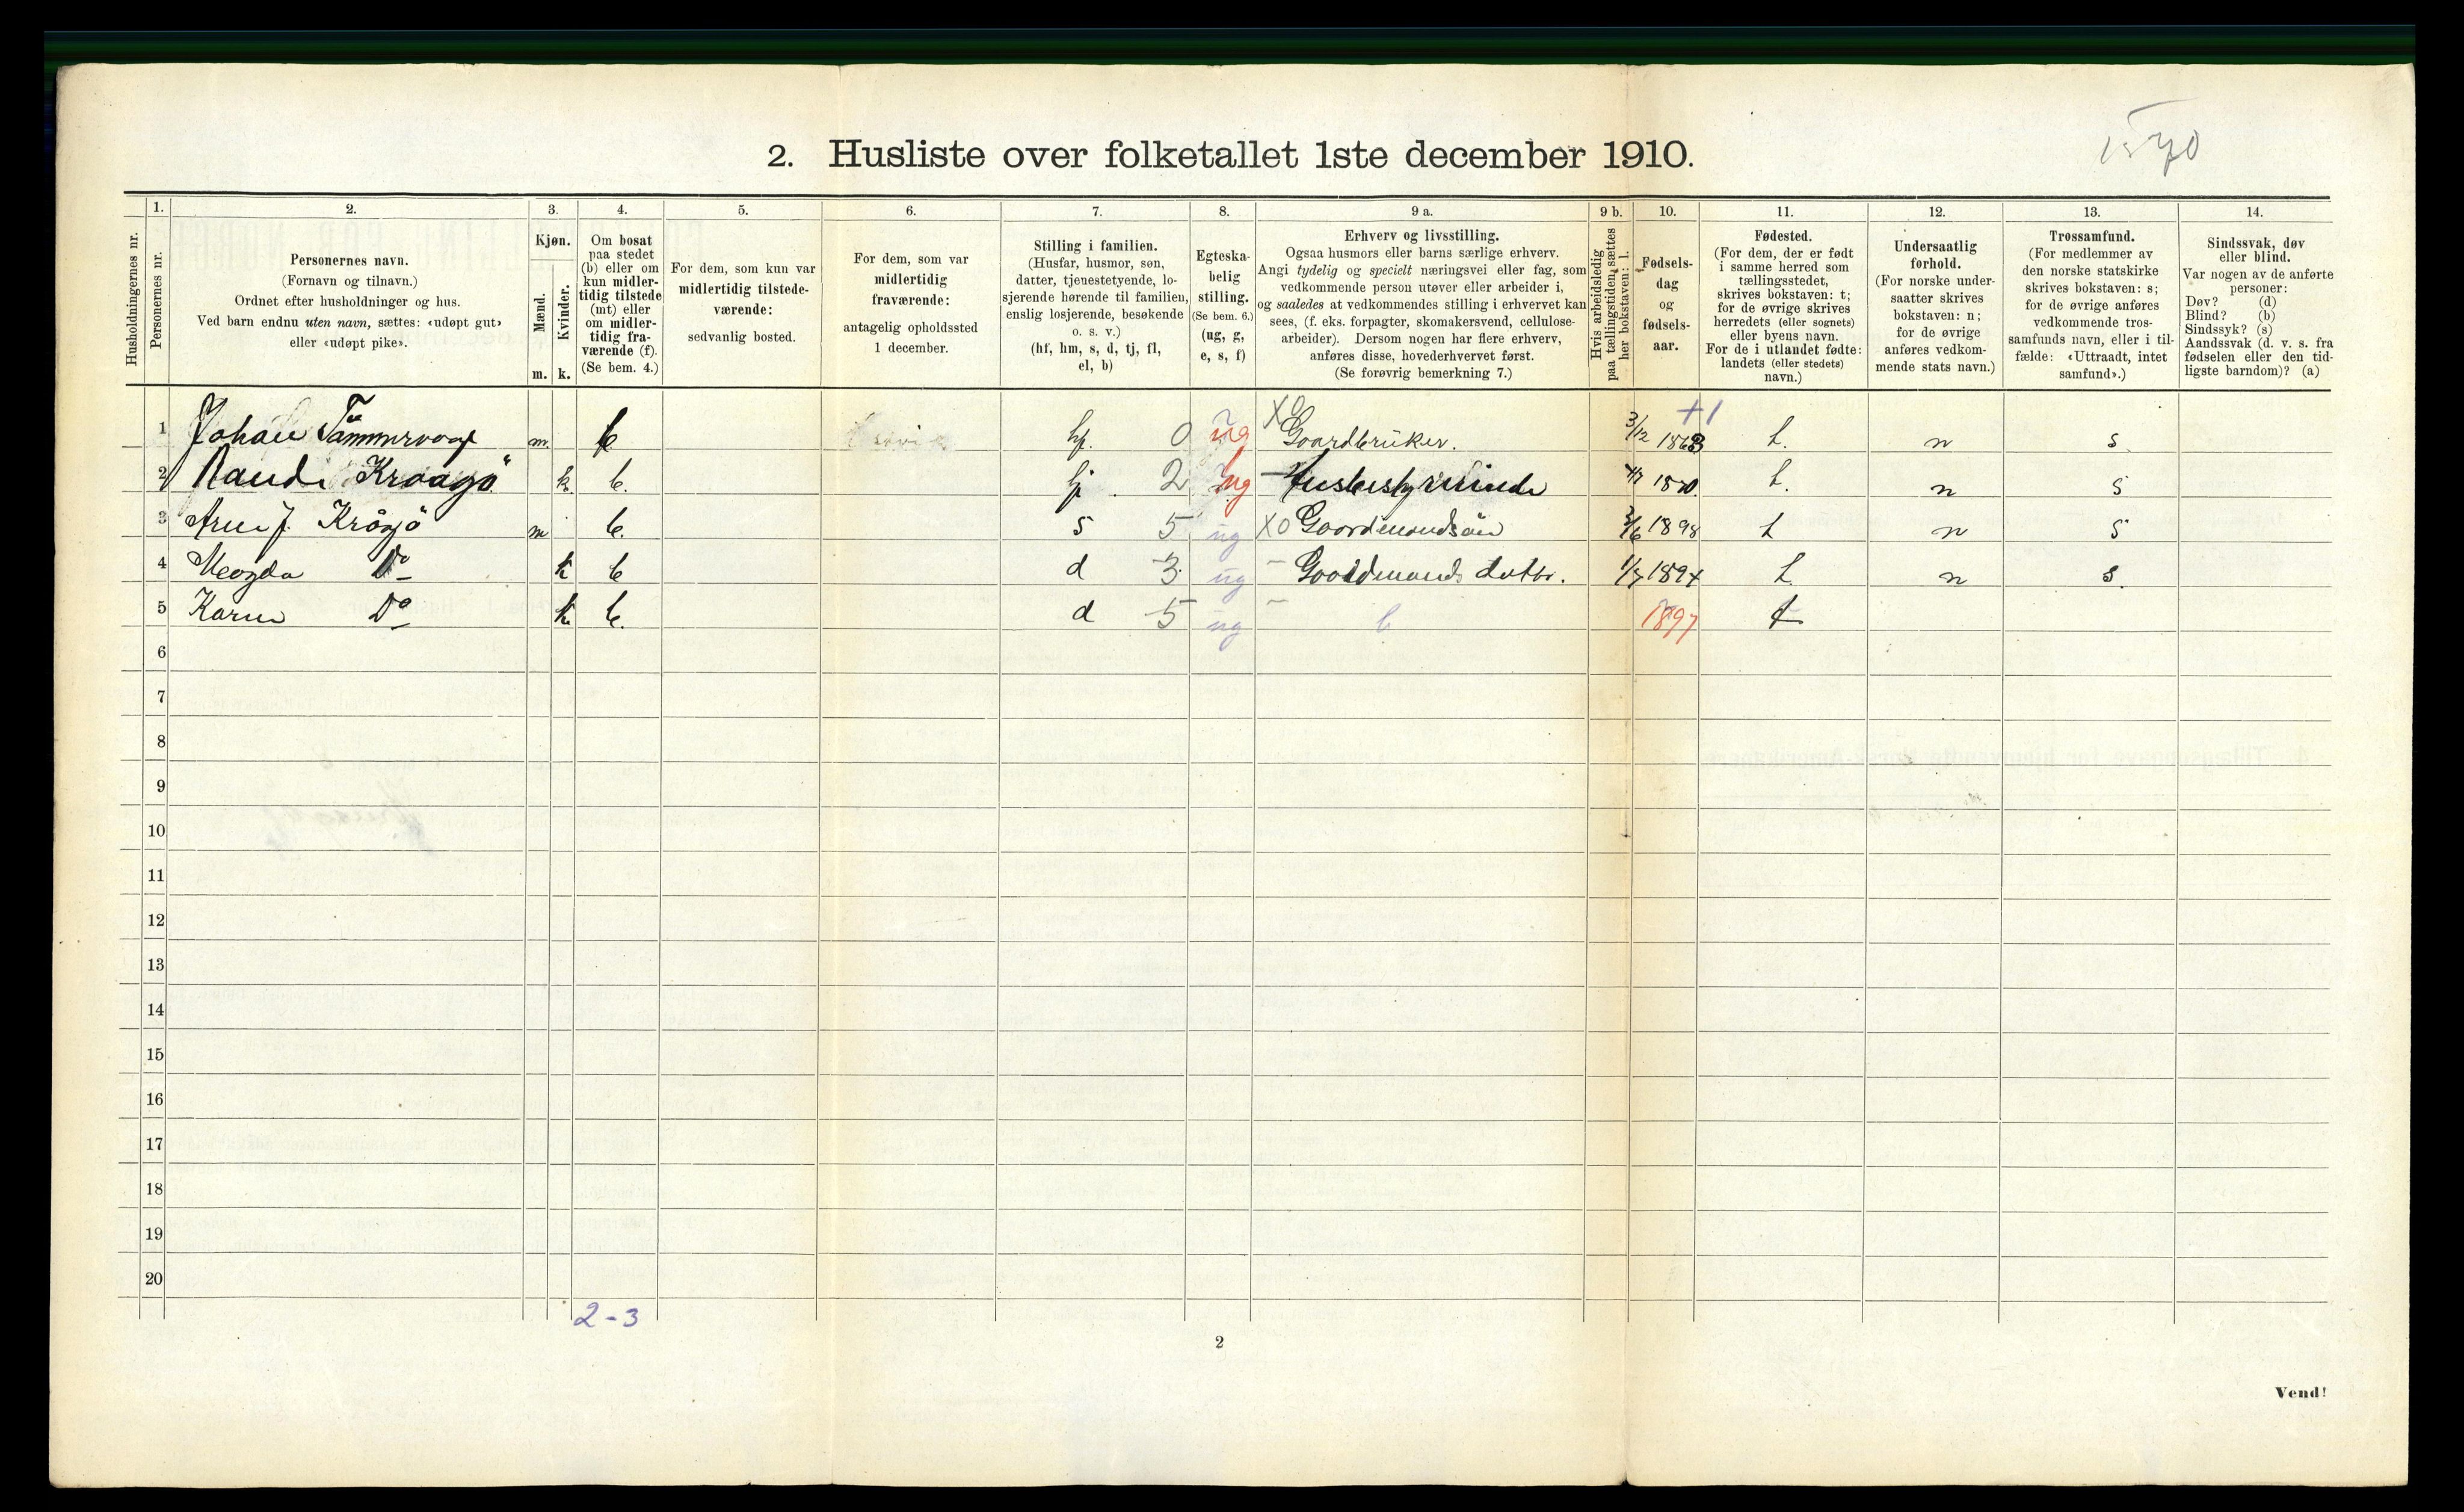 1570
2. Husliste over folketallet 1ste december 1910.
1. 2. 3. 4. 5. 6. 7. 8. 9 a. 9 b. 10. 11. 12. 13. 14.
Husholdningernes nr.
Personernes nr.
Personernes navn.
(Fornavn og tilnavn.)
Ordnet efter husholdninger og hus.
Ved barn endnu uten navn, sættes: «udøpt gut»
eller «udøpt pike».
Kjøn.
Mænd.
Kvinder.
m. k.
Om bosat
paa stedet
(b) eller om
kun midler-
tidig tilstede
(mt) eller
om midler-
tidig fra-
værende (f).
(Se bem. 4.)
For dem, som kun var
midlertidig tilstede-
værende:
sedvanlig bosted.
For dem, som var
midlertidig
fraværende:
antagelig opholdssted
1 december.
Stilling i familien.
(Husfar, husmor, søn,
datter, tjenestetyende, lo-
sjerende hørende til familien,
enslig losjerende, besøkende
o. s. v.)
(hf, hm, s, d, tj, fl,
el, b)
Egteska-
belig
stilling.
(Se bem. 6.)
(ug, g,
e, s, f)
Erhverv og livsstilling.
Ogsaa husmors eller barns særlige erhverv.
Angi tydelig og specielt næringsvei eller fag, som
vedkommende person utøver eller arbeider i,
og saaledes at vedkommendes stilling i erhvervet kan
sees, (f. eks. forpagter, skomakersvend, cellulose-
arbeider). Dersom nogen har flere erhverv,
anføres disse, hovederhvervet først.
(Se forøvrig bemerkning 7.)
Hvis arbeidsledig
paa tællingstiden, sættes
her bokstaven: l.
Fødsels-
dag
og
fødsels-
aar.
Fødested.
(For dem, der er født
i samme herred som
tællingsstedet,
skrives bokstaven: t;
for de øvrige skrives
herredets (eller sognets)
eller byens navn.
For de i utlandet fødte:
landets (eller stedets)
navn.)
Undersaatlig
forhold.
(For norske under-
saatter skrives
bokstaven: n;
for de øvrige
anføres vedkom-
mende stats navn.)
Trossamfund.
(For medlemmer av
den norske statskirke
skrives bokstaven: s;
for de øvrige anføres
vedkommende tros-
samfunds navn, eller i til-
fælde: «Uttraadt, intet
samfund».)
Sindssvak, døv
eller blind.
Var nogen av de anførte
personer:
Døv? (d)
Blind? (b)
Sindssyk? (s)
Aandssvak (d. v. s. fra
fødselen eller den tid-
ligste barndom)? (a)
1 Johan m. b hf. 0 ug X0 Gaardbruker. 3/12 1863 +1 t. n s
2 Kraagö k. b. tj. 2 ug Husbestyrerinde 1870. t. n s
3 Arne J. Krågö m b. s 5 ug X0 Gaardmandsön 3/6 1898 t n s
4 Magda Do k b d 3 ug - Gaardmands datter. t. n s.
5 Karen Do k. b. d 5 ug - 1897 t
6
7
8
9
10
11
12
13
14
15
16
17
18
19
20
2-3
2
Vend!